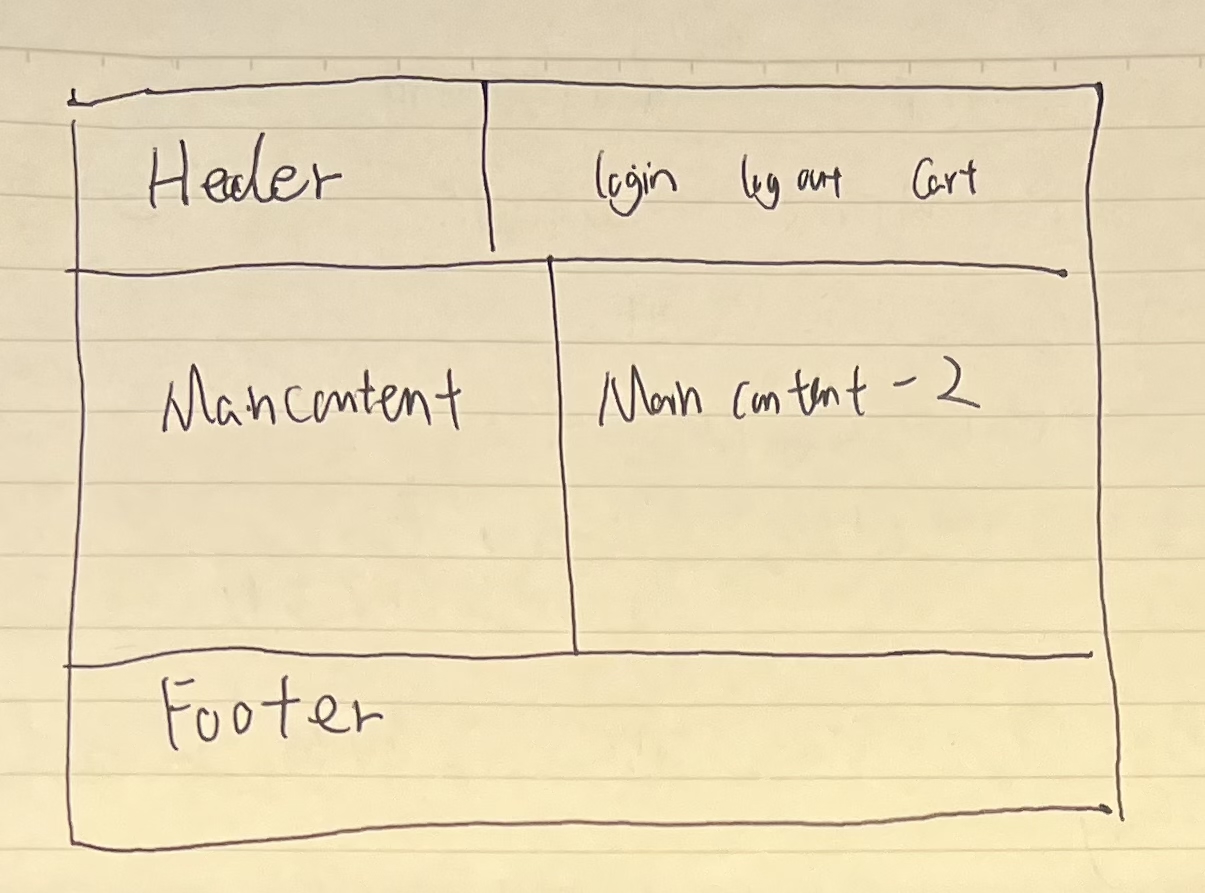 Header
login log out Cart
Main content
Main content - 2
Footer